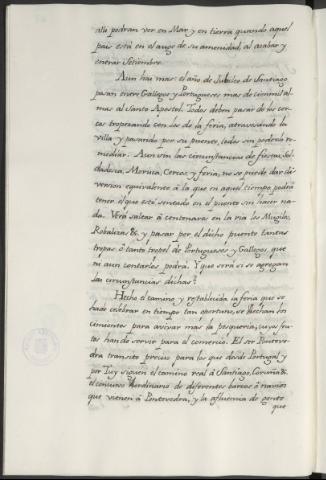 allò podran ver en Mar, y en tierra quando aquel
pais està en el auge de su amenidad, al acabar y
entrar Setiembre.
Aun hai mas: el año de Jubileo de Santiago
pasan entre Gallegos y Portugueses mas de cien mil al-
mas al Santo Apostol. Todos deben pasar de los cer-
cos tropezando con los de la feria, atravesando la
villa y pasando por su puente, todos sin poderlo re-
mediar. Aun son las circunstancias de fiestas, Sol-
dadesca, Musica, Cercos y feria, no se puede dar di-
version equivalente à la que en aquel tiempo podrà
tener el que està sentado en el puente sin hacer na-
da. Verà saltar à centenares en la ria los Mugiles,
Robalizas &. y pasar por el dicho puente tantas
tropas, ò tanto tropel de Portugueses y Gallegos, que
ni aun contarlos podrà. Y que serà si se agregan
las circunstancias dichas?
Hecho el camino y restablecida la feria que se
ha de celebrar en tiempo tan oportuno, se hechan los
cimientos para avivar mas la pesqueria, cuyos fru-
tos han de servir para el comercio. El ser Ponteve-
dra transito preciso para los que desde Portugal y
por Tuy siguen el camino real à Santiago, Coruña &.
el concurso ordinario de diferentes barcos ò navios
que vienen à Pontevedra, y la afluencia de gente
que